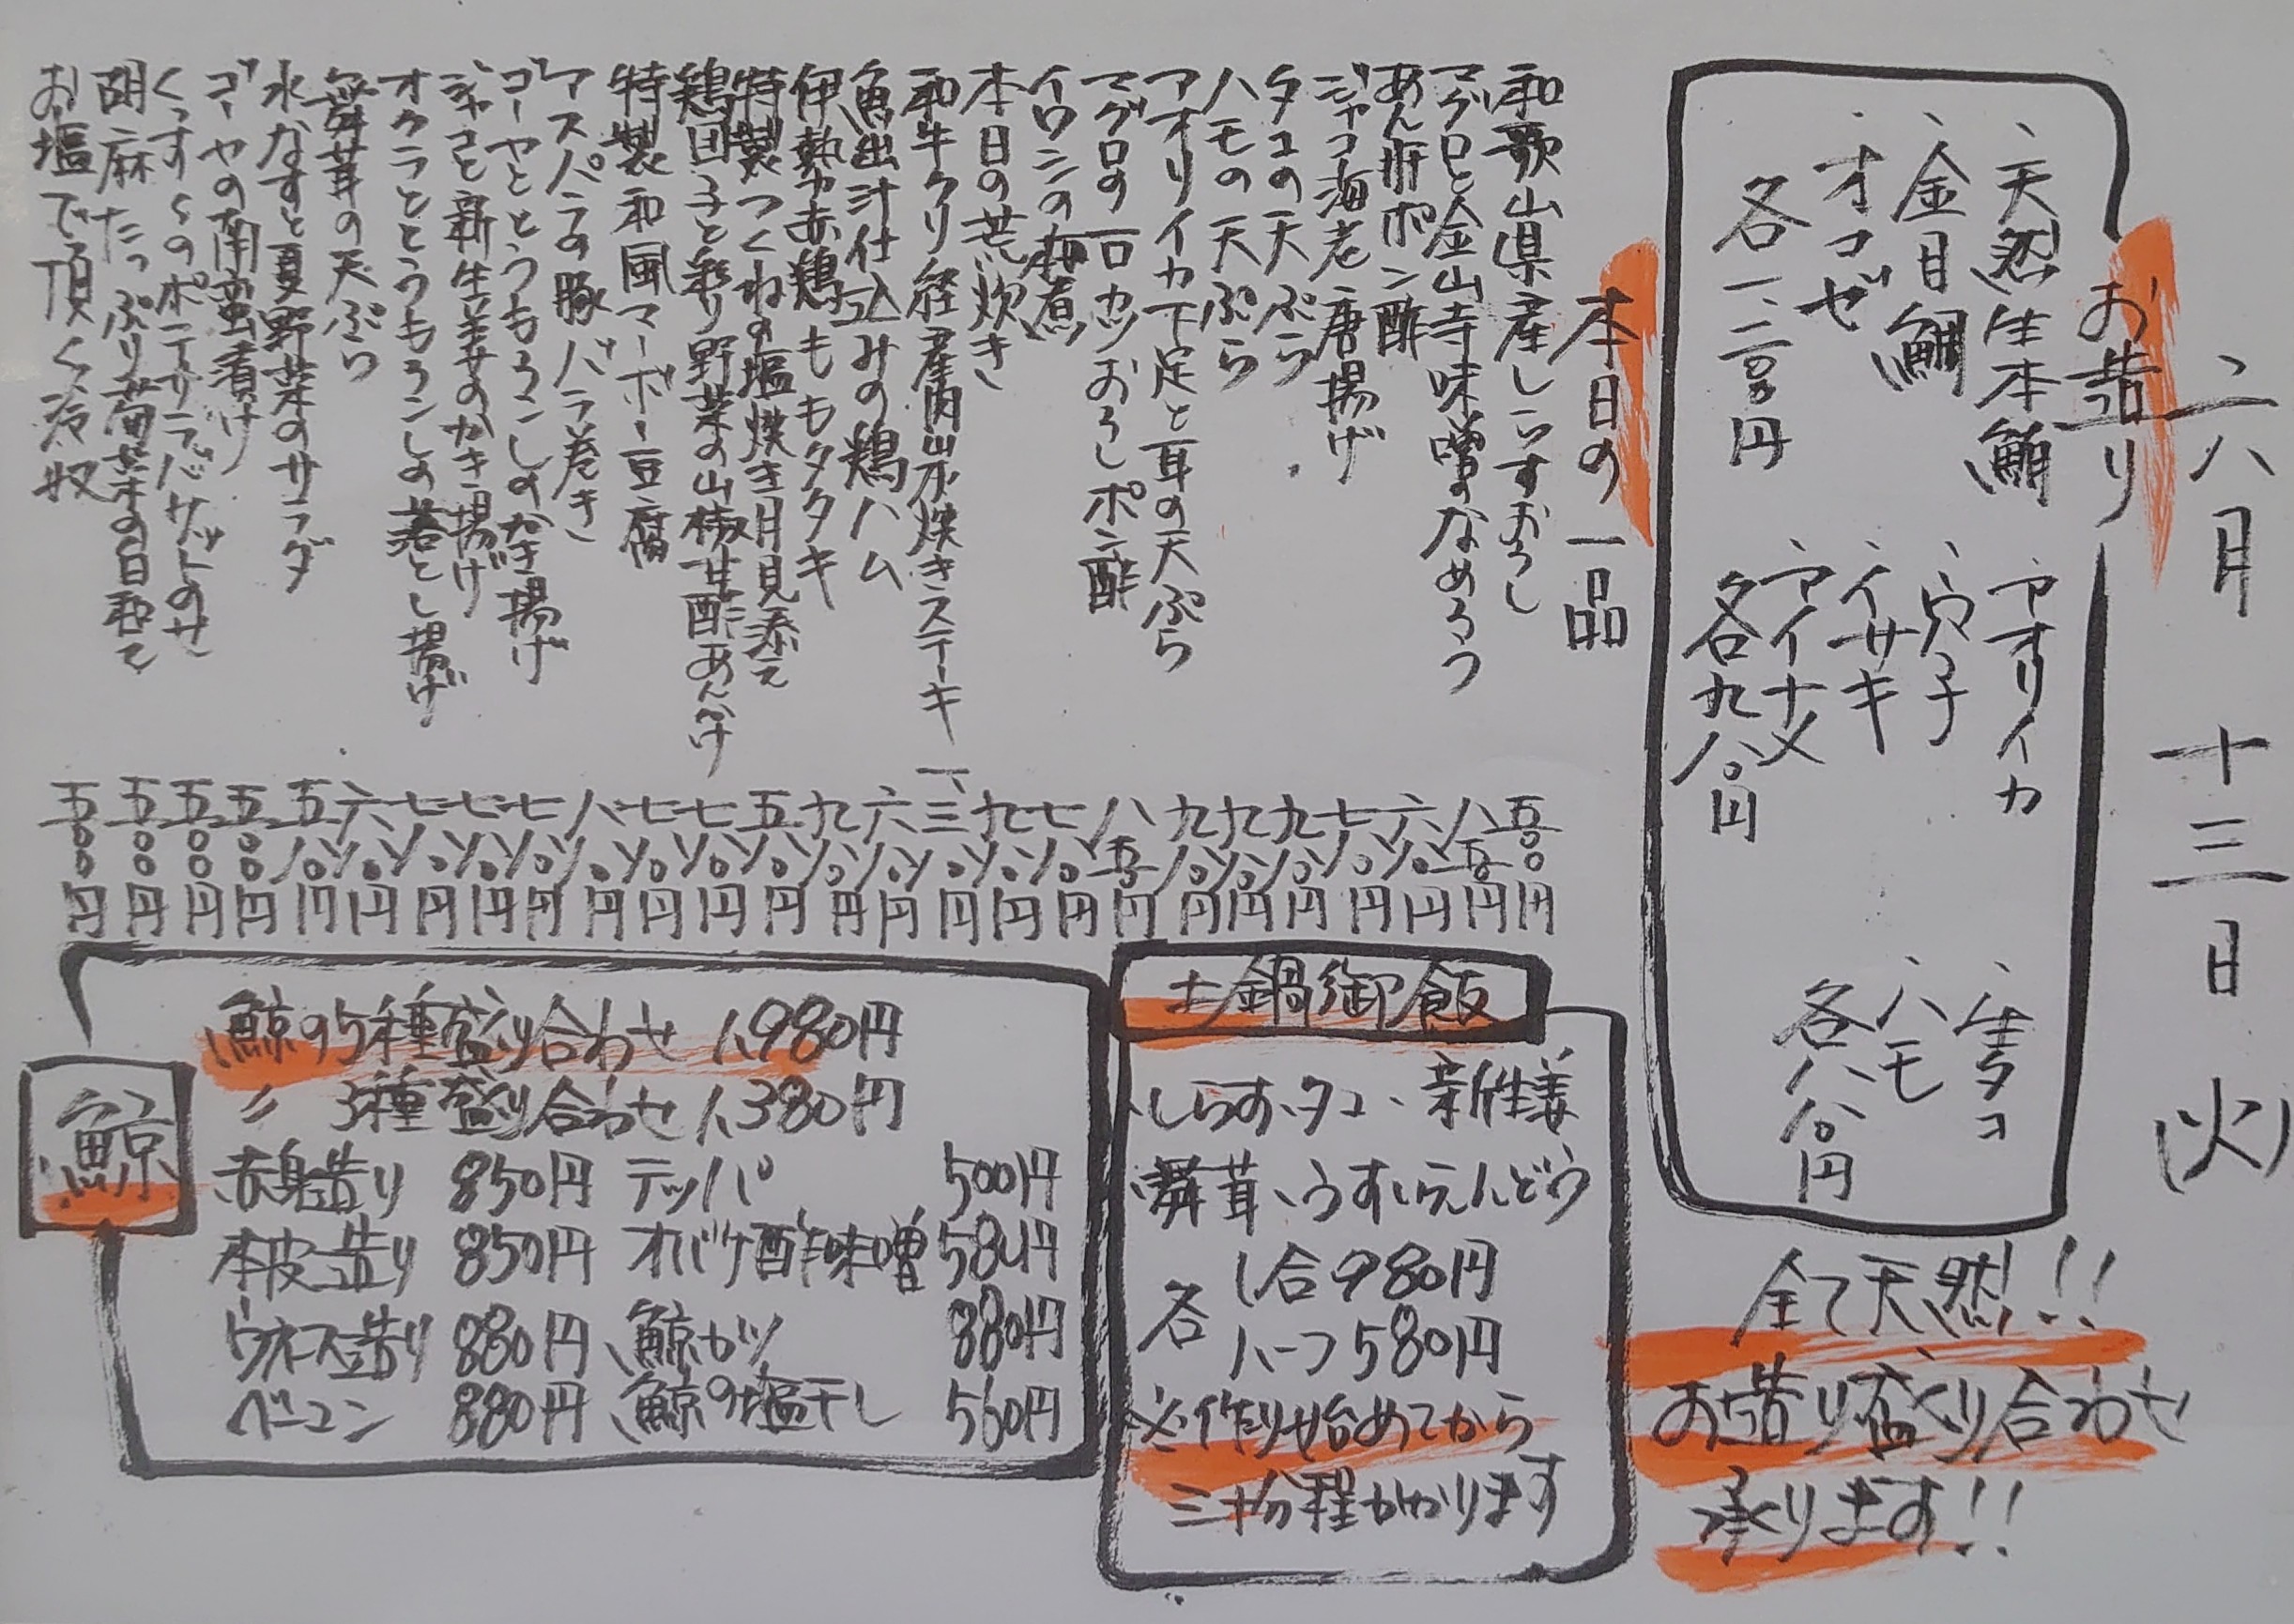 六月 十三日 (火)
お造り
、天然生本鮪
、金目鯛
、オコゼ
各一、二〇〇円
、アオリイカ
、穴子
、イサキ
、アイナメ
各九八〇円
、生タコ
、ハモ
各八八〇円
全て天然!!
お造り盛り合わせ
承ります!!
本日の一品
和歌山県産しらすおろし 五〇〇円
マグロと金山寺味噌のなめろう 八五〇円
あん肝ポン酢 六八〇円
ジャコ海老唐揚げ 七八〇円
タコの天ぷら 九八〇円
ハモの天ぷら 九八〇円
アオリイカ下足と耳の天ぷら 九八〇円
マグロの一口カツおろしポン酢 八五〇円
イワシの梅煮 七八〇円
本日の荒炊き 九八〇円
和牛クリ経産肉炭火焼きステーキ 一、三八〇円
魚出汁仕込みの鶏ハム 六八〇円
伊勢赤鶏ももタタキ 九八〇円
特製つくねの塩焼き月見添え 五八〇円
鶏団子と彩り野菜の山椒甘酢あんかけ 七八〇円
特製和風マーボー豆腐 七八〇円
アスパラの豚バラ巻き 八八〇円
ゴーヤととうもろこしのかき揚げ 七八〇円
ジャコと新生姜のかき揚げ 七八〇円
オクラととうもろこしの落とし揚げ 七八〇円
舞茸の天ぷら 六八〇円
水なすと夏野菜のサラダ 五八〇円
ゴーヤの南蛮漬け 五〇〇円
くすくすのポテサラバケットのせ 五〇〇円
胡麻たっぷり菊菜の白和え 五〇〇円
お塩で頂く冷奴 五〇〇円
土鍋御飯
、しらす、タコ、新生姜
、舞茸、うすいえんどう
各 1合980円
ハーフ580円
※作り始めてから
三十分程かかります
鯨
鯨の5種盛り合わせ 1,980円
〃 3種盛り合わせ 1,380円
赤身造り 850円 テッパ 500円
本皮造り 850円 オバケ酢味噌 580円
ウネス造り 880円 鯨カツ 880円
ベーコン 880円 鯨の塩干し 560円